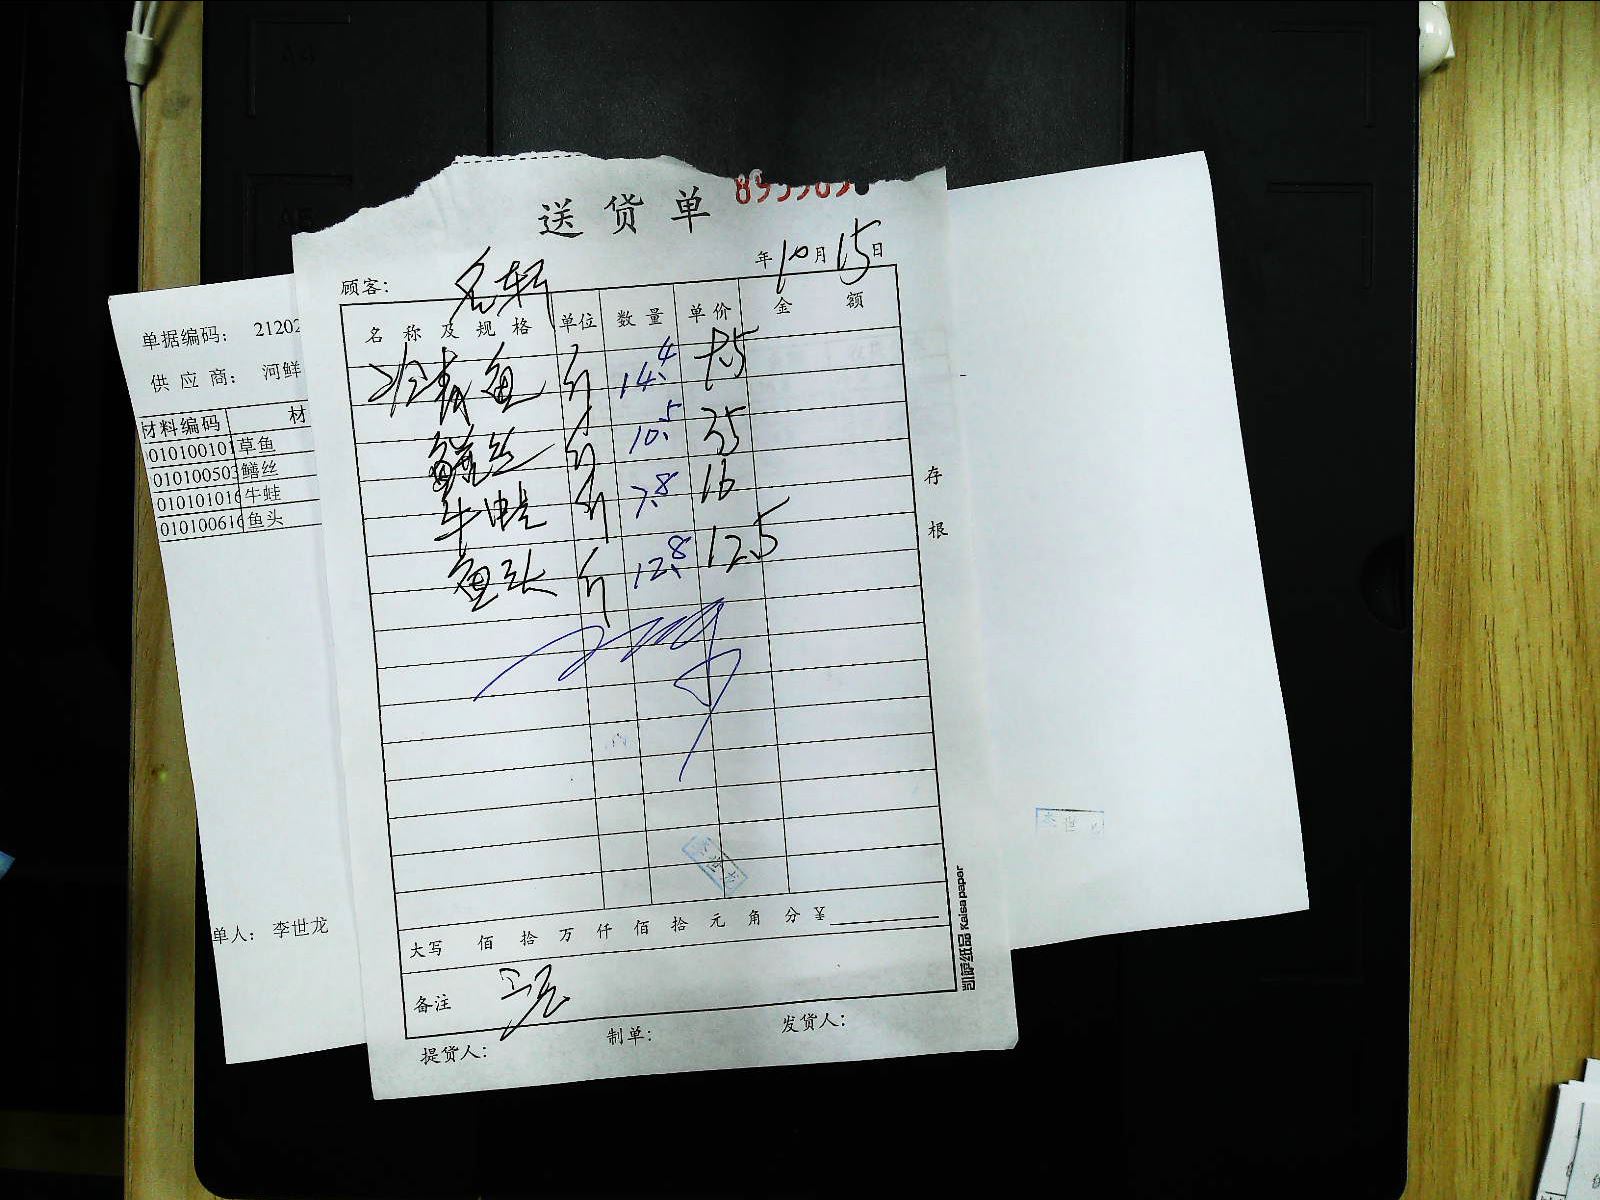 送货单
年10月15日
顾客：名轩
名称及规格 单位 数量 单价 金额
草鱼 斤 14.4
鳝丝 斤 10.5 35
牛蛙 斤 7.8 16
鱼头 斤 12.8 12.5
大写 佰 拾 万 仟 佰 拾 元 角 分 ¥
备注
提货人： 制单： 发货人：
存根
凯萨纸品 Kaisa paper
单据编码： 21202
供应商： 河鲜
材料编码 材
010100101 草鱼
010100503 鳝丝
010101016 牛蛙
010100616 鱼头
单人： 李世龙